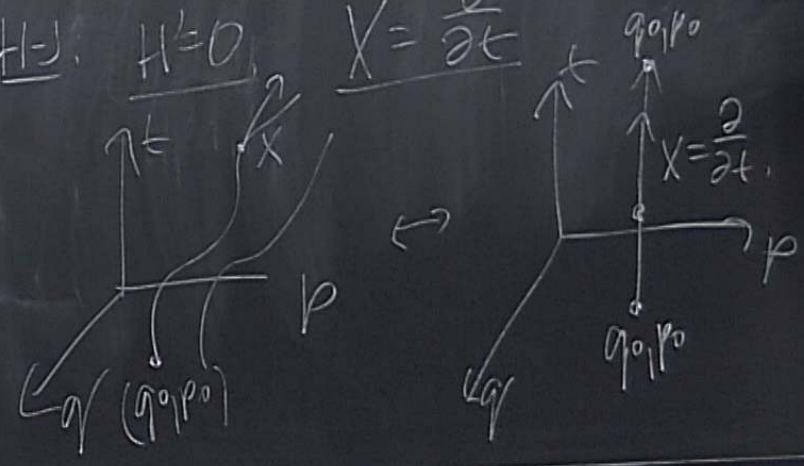 H-J. H'=0, X = ∂/∂t
t
X
p
q (q₀,p₀)
↔
t
q₀,p₀
X=∂/∂t.
p
q₀,p₀
q